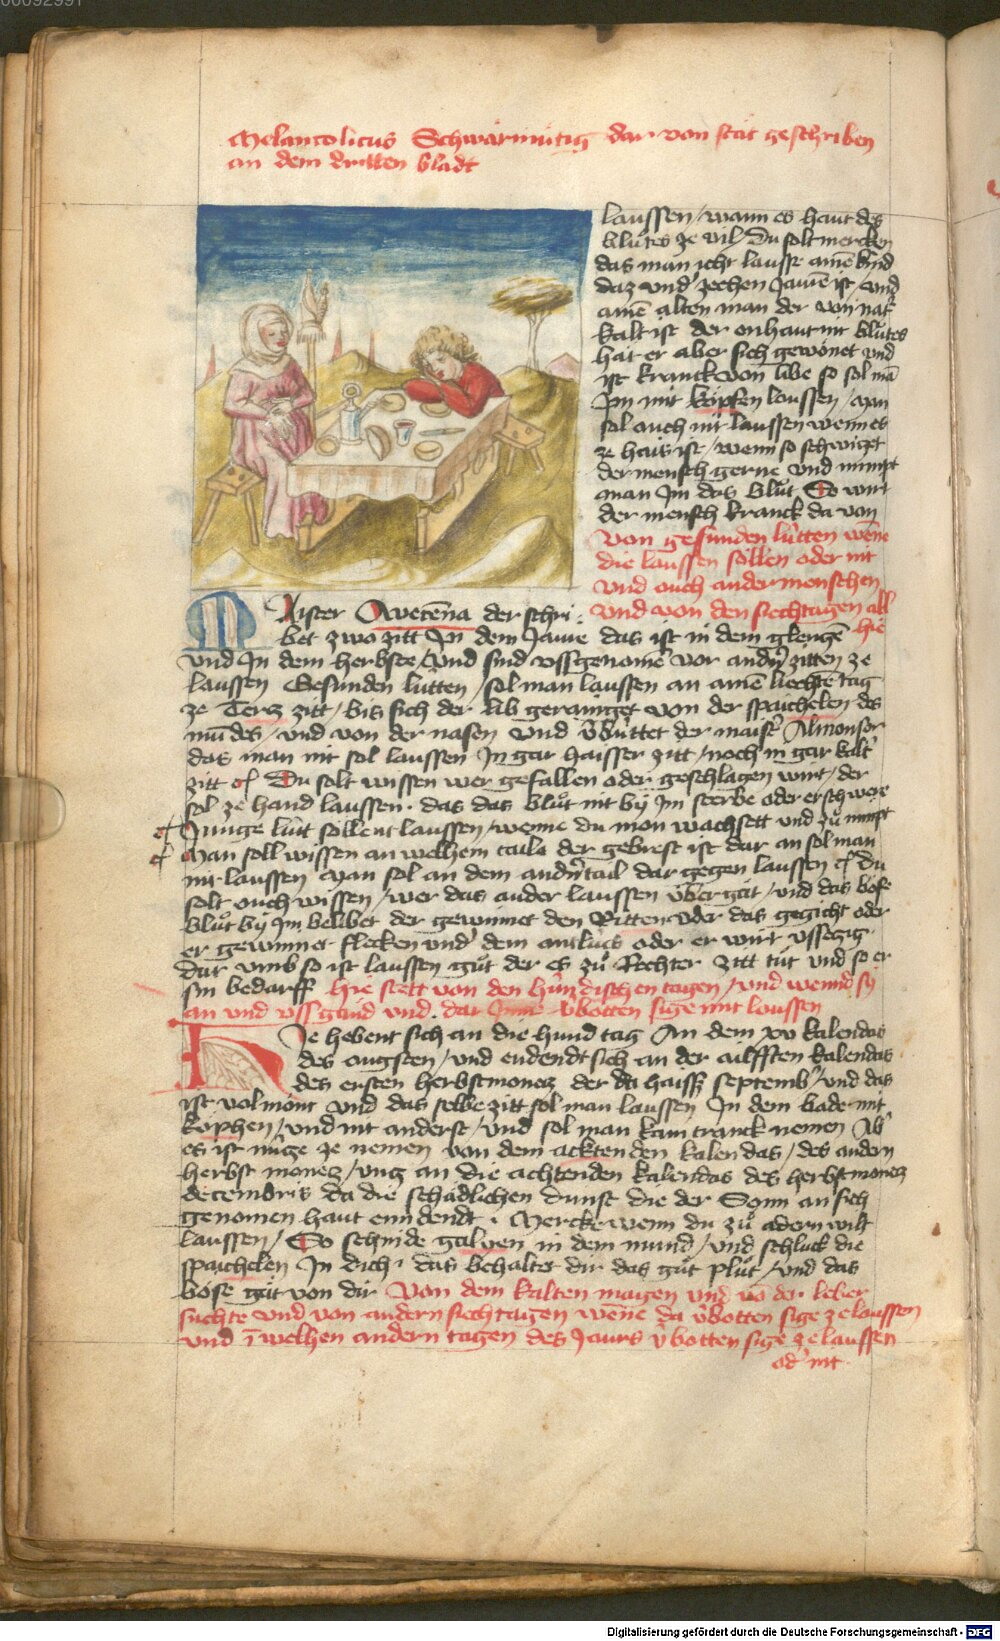 00092991
Melancolicus Schwärmütig dar von stät geschriben
an dem dritten bladt
laussen / wann es haut des
blůtes ze vil / Du solt mercken
das man icht lausse ainē kind
daz vnder zechen Jauren ist / vnd
ainē alten man der von nat
kalt ist der enhaut nit blůtes
hat er aber sich gewonet vnd
ist kranck von libe so sol mā
Im mit köpfen laussen / man
sol ouch nit laussen wenn es
ze hais ist / wenn so schwiczt
der mensch gerne vnd nimpt
man Im das blůt So wirt
der mensch kranck da von
Von gesunden lütten wēne
die laussen söllen oder nit
vnd ouch ander menschen
vnd von den siechtagen all
hie
Maister Auecēna der schri-
bet zwo zitt In dem Jaure das ist in dem glencze
vnd In dem herbste / vnd sind vssgenomē vor andn zitten ze
laussen Gesunden lütten / sol man laussen an ainē liechtē tag
ze Tercz zitt / bis sich der lib gerainget von der spaichelen des
mūdes / vnd von der nasen vnd v̄büttet der maistr Almonsor
das man nit sol laussen In gar haisser zitt / noch in gar kaltr
zitt Du solt wissen wer gefallen oder geschlagen wirt / der
sol ze hand laussen · das das blůt nit by Im sterbe oder erschwere
Junge lüt söllent laussen / wenne du mon wachsett vnd zů nimpt
Man soll wissen an welhem taile der gebrest ist dar an sol man
nit laussen Man sol an dem andn tail dar gegen laussen du
solt ouch wissen / wer das ander laussen übergät / vnd das böse
blůt by Im belibet der gewinnet den Ritten oder das gegicht oder
er gewinnet flecken vnder dem antlücz oder er wirt vssetzig
Dar vmb so ist laussen gůt der es zů Rechter zitt tůt vnd so er
sin bedarff Hie stett von den hündischen tagen / vnd wenne sy
an vnd vss gand vnd · dar Inne v̄botten sige nit laussen
Hie hebent sich an die hund tag An dem xv kalendas
des augsten / vnd endendt sich an der ailfften kalendas
des ersten herbstmonez der da haisst septembr / vnd das
ist volmont vnd das selbe zitt sol man laussen In dem bade mit
köphen / vnd nit anderst / vnd sol man kain tranck nemen Ab
es ist nücze ze nemen von dem ackten den kalendas / des andern
herbst monez / vncz an die achtenden kalendas des herbstmonez
decembris da die schädlichen dunst die der Sonn an sich
genomen haut enndendt · Mercke wenn du zů adern wilt
laussen / So schnide galuen in dem mund / vnd schluck die
spaichelen In dich · das behaltet dir das gůt plůt / vnd das
böse gät von dir Von dem kalten magen vnd vō der leber
siechte vnd von andern siechtagen wēne da v̄botten sige ze laussen
vnd ī welhen andern tagen des Jaurs v̄botten sige ze laussen
odr nit
Digitalisierung gefördert durch die Deutsche Forschungsgemeinschaft - DFG